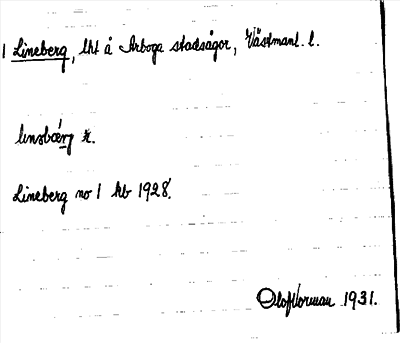 1 Lineberg, lht å Arboga stadsägor, Västmanl. l.
Lineberg no 1 kb 1928.
Olof Norman 1931.